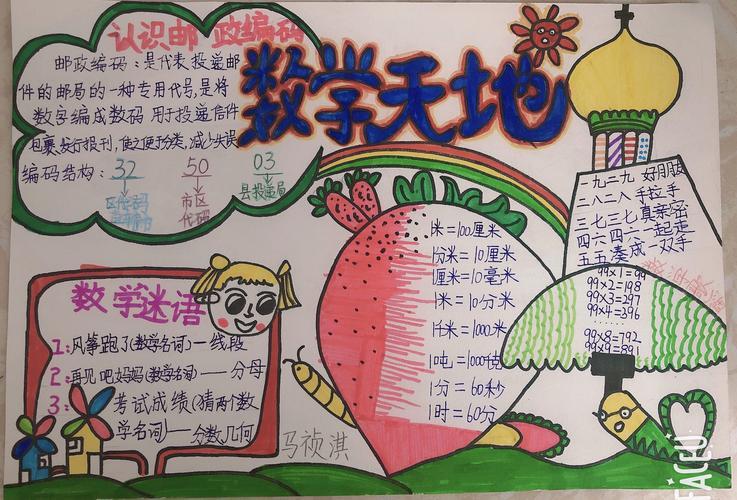 认识邮政编码
邮政编码：是代表投递邮
件的邮局的一种专用代号，是将
数字编成数码 用于投递信件
包裹 发行报刊，使之便于分类，减少失误
编码结构：32 50 03
市区
代码
县投递局
数学天地
一九二九 好朋友
二八二八 手拉手
三七三七 真亲密
四六四六 一起走
五五凑成一双手
99×1=99
99×2=198
99×3=297
99×4=396
......
99×8=792
99×9=891
1米=100厘米
1分米=10厘米
1厘米=10毫米
1米=10分米
1千米=1000米
1吨=1000千克
1分=60秒
1时=60分
数学谜语
1:风筝跑了(数学名词)一线段
2:再见吧妈妈(数学名词)——分母
3:考试成绩(猜两个数
学名词)—分数几何
马祯淇
FACEU